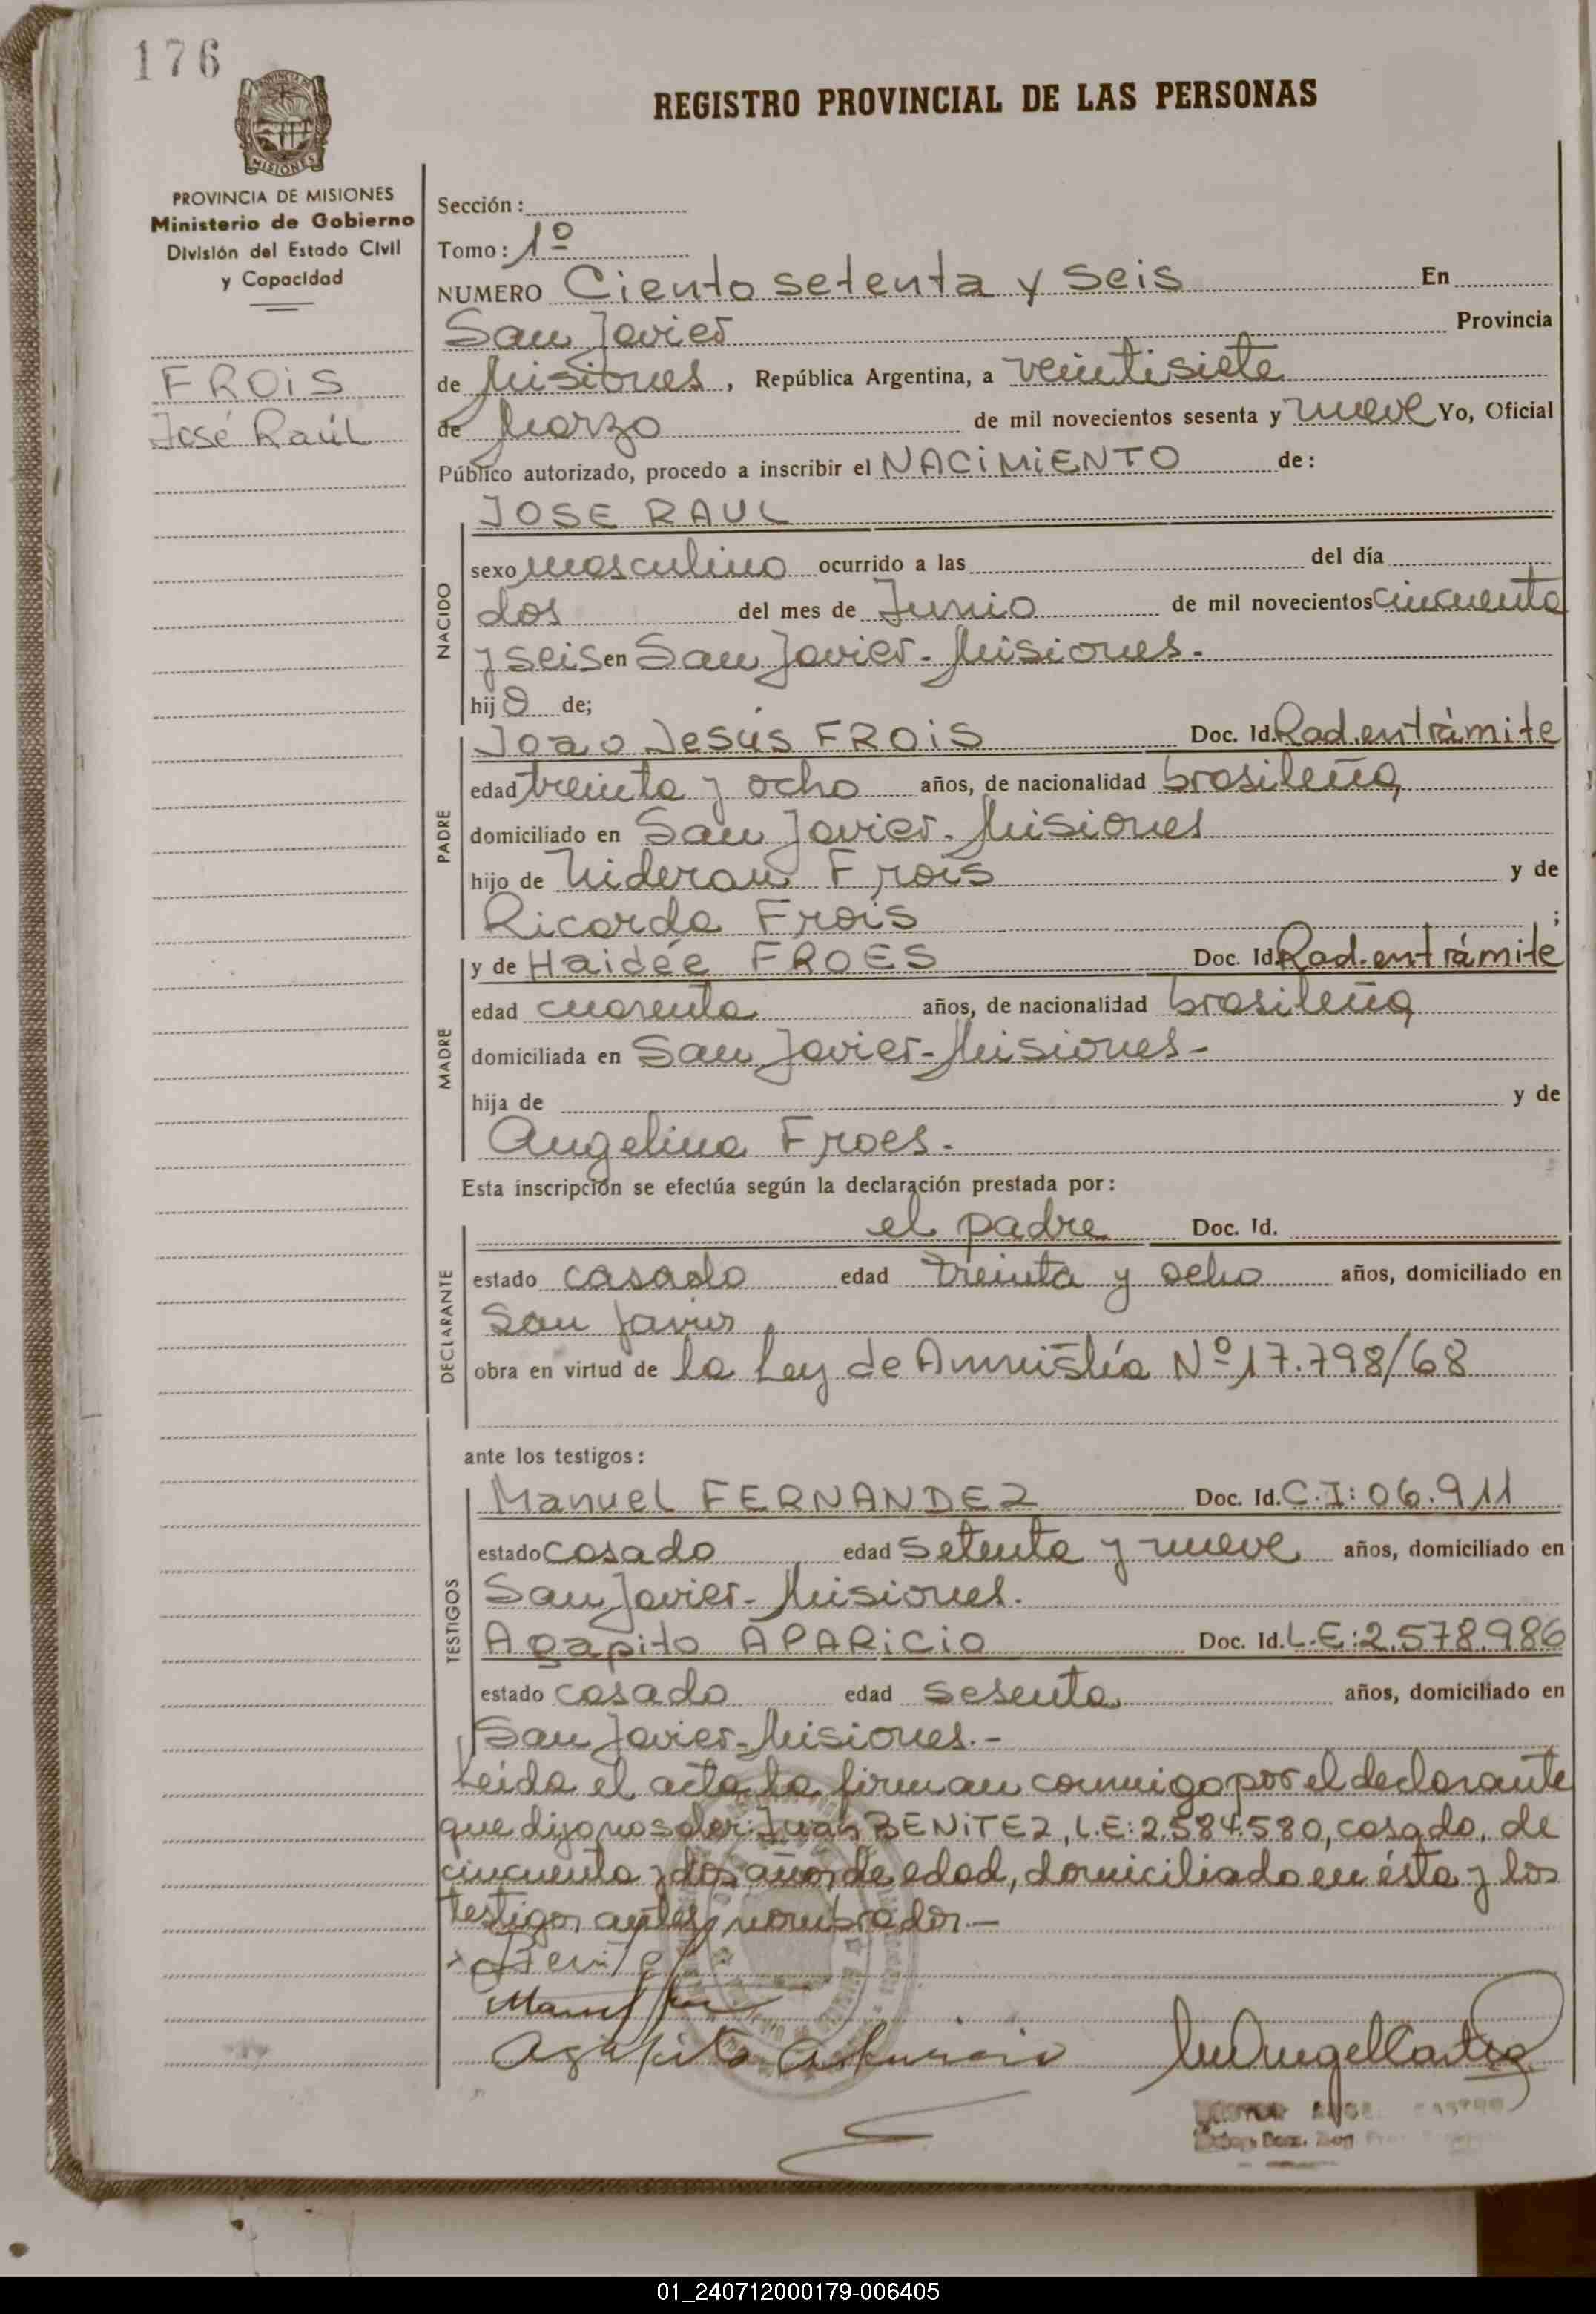 176
MISIONES
PROVINCIA DE MISIONES
Ministerio de Gobierno
División del Estado Civil
y Capacidad
FROIS
José Raúl
REGISTRO PROVINCIAL DE LAS PERSONAS
Sección:
Tomo: 1º
NUMERO Ciento setenta y seis En
San Javier Provincia
de Misiones, República Argentina, a veintisiete
de Marzo de mil novecientos sesenta y nueve Yo, Oficial
Público autorizado, procedo a inscribir el NACIMIENTO de:
NACIDO
JOSE RAUL
sexo masculino ocurrido a las del día
dos del mes de Junio de mil novecientos cincuenta
y seis en San Javier - Misiones.
hijo de;
PADRE
Joao Jesús FROIS Doc. Id. Rad. en trámite
edad treinta y ocho años, de nacionalidad brasileña
domiciliado en San Javier - Misiones
hijo de Frois y de
Ricarda Frois ;
MADRE
y de Haidée FROES Doc. Id. Rad. en trámite
edad cuarenta años, de nacionalidad brasileña
domiciliada en San Javier - Misiones -
hija de y de
Angelina Froes.
Esta inscripción se efectúa según la declaración prestada por:
DECLARANTE
el padre Doc. Id.
estado casado edad treinta y ocho años, domiciliado en
San Javier
obra en virtud de la Ley de Amnistía Nº 17.798/68
ante los testigos:
TESTIGOS
Manuel FERNANDEZ Doc. Id. C.I: 06.911
estado casado edad setenta y nueve años, domiciliado en
San Javier - Misiones.
Agapito APARICIO Doc. Id. L.E: 2.578.986
estado casado edad sesenta años, domiciliado en
San Javier - Misiones. -
Leída el acta la firman conmigo por el declarante
que dijo no saber: Juan BENITEZ, L.E: 2.584.580, casado, de
cincuenta y dos años de edad, domiciliado en ésta y los
testigos antes nombrados. -
Agapito Aparicio
CASTRO
01_240712000179-006405